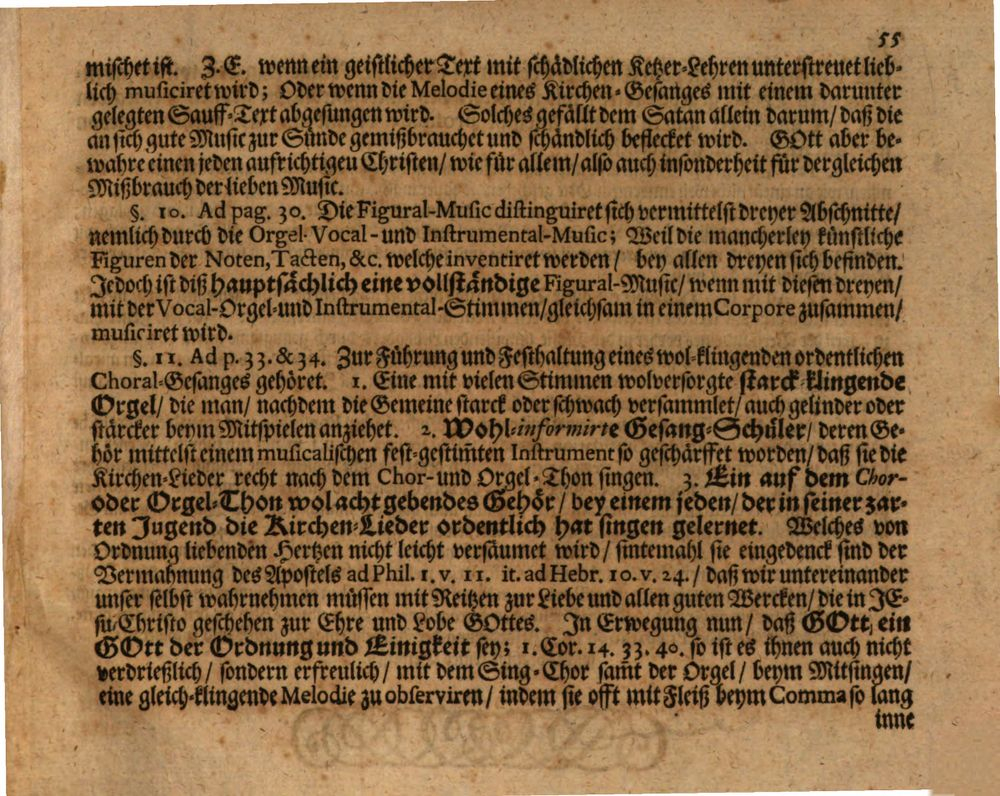 55
mischet ist. Z. E. wenn ein geistlicher Text mit schädlichen Ketzer-Lehren unterstreuet lieb-
lich musiciret wird; Oder wenn die Melodie eines Kirchen-Gesanges mit einem darunter
gelegten Sauff-Text abgesungen wird. Solches gefällt dem Satan allein darum/ daß die
an sich gute Music zur Sünde gemißbrauchet und schändlich beflecket wird. GOtt aber be-
wahre einen jeden aufrichtigeu Christen/ wie für allem/ also auch insonderheit für dergleichen
Mißbrauch der lieben Music.
§. 10. Ad pag. 30. Die Figural-Music distinguiret sich vermittelst dreyer Abschnitte/
nemlich durch die Orgel- Vocal- und Instrumental-Music; Weil die mancherley künstliche
Figuren der Noten, Tacten, &c. welche inventiret werden/ bey allen dreyen sich befinden.
Jedoch ist diß hauptsächlich eine vollständige Figural-Music/ wenn mit diesen dreyen/
mit der Vocal-Orgel-und Instrumental-Stimmen/ gleichsam in einem Corpore zusammen/
musiciret wird.
§. 11. Ad p. 33. & 34. Zur Führung und Festhaltung eines wol-klingenden ordentlichen
Choral-Gesanges gehöret. 1. Eine mit vielen Stimmen wolversorgte starck-klingende
Orgel/ die man/ nachdem die Gemeine starck oder schwach versammlet/ auch gelinder oder
stärcker beym Mitspielen anziehet. 2. Wohl-informirte Gesang-Schüler/ deren Ge-
hör mittelst einem musicalischen fest-gestim̃ten Instrument so geschärffet worden/ daß sie die
Kirchen-Lieder recht nach dem Chor- und Orgel-Thon singen. 3. Ein auf dem Chor-
oder Orgel-Thon wol acht gebendes Gehör/ bey einem jeden/ der in seiner zar-
ten Jugend die Kirchen-Lieder ordentlich hat singen gelernet. Welches von
Ordnung liebenden Hertzen nicht leicht versäumet wird/ sintemahl sie eingedenck sind der
Vermahnung des Apostels ad Phil. 1. v. 11. it. ad Hebr. 10. v. 24./ daß wir untereinander
unser selbst wahrnehmen müssen mit Reitzen zur Liebe und allen guten Wercken/ die in JE-
su Christo geschehen zur Ehre und Lobe GOttes. In Erwegung nun/ daß GOtt, ein
GOtt der Ordnung und Einigkeit sey; 1. Cor. 14. 33. 40. so ist es ihnen auch nicht
verdrießlich/ sondern erfreulich/ mit dem Sing-Chor sam̃t der Orgel/ beym Mitsingen/
eine gleich-klingende Melodie zu observiren/ indem sie offt mit Fleiß beym Comma so lang
inne